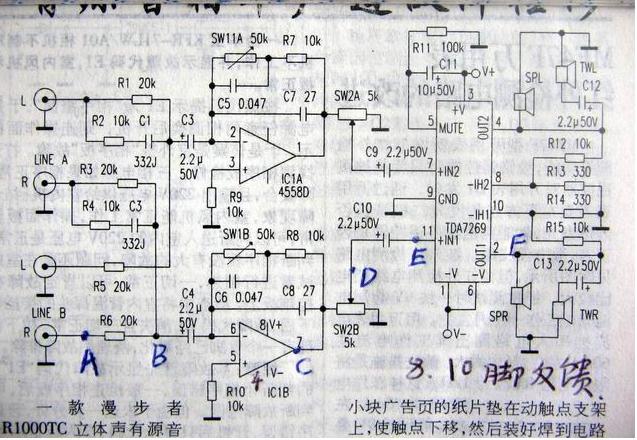 SW11A 50k R7 10k
R11 100k
C11
10μ50V
V+
+V
3
SPL
TWL
C12
2.2μ50V
R1 20k
L
R2 10k C1
C3
332J
2.2μ
50V
C5 0.047
C7 27
SW2A 5k
2
3
1
IC1A
4558D
R9
10k
5
MUTE
OUT2
4
C9 2.2μ50V
7
+IN2
LINE A
R
R3 20k
R4 10k C3
332J
R12 10k
-IH2 8 R13 330
R14 330
9
GND
-IH1 10
R15 10k
C10
2.2μ50V
11
+IN1
TDA7269
OUT1
2
E
F
D
SW1B 50k R8 10k
L
R5 20k
C6 0.047
C8 27
C4
2.2μ
50V
-V -V
1 6
V-
C13 2.2μ50V
SPR
TWR
LINE B
R
R6 20k
A
B
6
5
8 V+
7
C
4 V-
IC1B
R10
10k
SW2B
5k
8.10脚反馈.
一款漫步者
R1000TC 立体声有源音
小块广告页的纸片垫在动触点支架
上,使触点下移,然后装好焊到电路